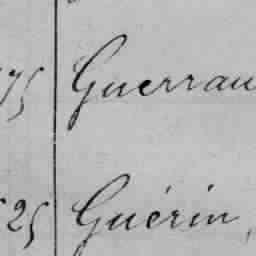 75 Guerrau
25 Guérin,